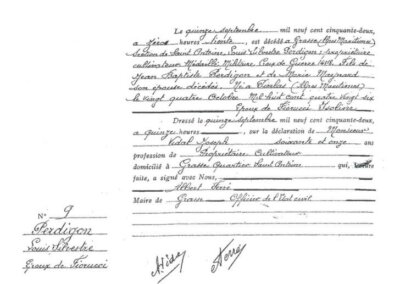 Le quinze septembre mil neuf cent cinquante-deux,
à seize heures trente, est décédé à Grasse (Alpes Maritimes)
Saint Antoine, Louis Silvestre Perdigon, propriétaire
cultivateur Médaillé Militaire, Croix de Guerre Fils de
Jean Baptiste Perdigon et de Marie Maynard
son épouse décédés. Né à (Alpes Maritimes)
le vingt quatre Octobre Mil huit cent quatre vingt six
Époux de Fiorucci
Dressé le quinze septembre mil neuf cent cinquante-deux,
à quinze heures, sur la déclaration de Monsieur
Vidal Joseph soixante et onze ans
profession de Propriétaire Cultivateur
domicilié à Grasse Quartier Saint Antoine qui, lecture
faite, a signé avec Nous,
Albert
Maire de Grasse Officier de l'État civil
N° 9
Perdigon
Louis Silvestre
Époux de Fiorucci